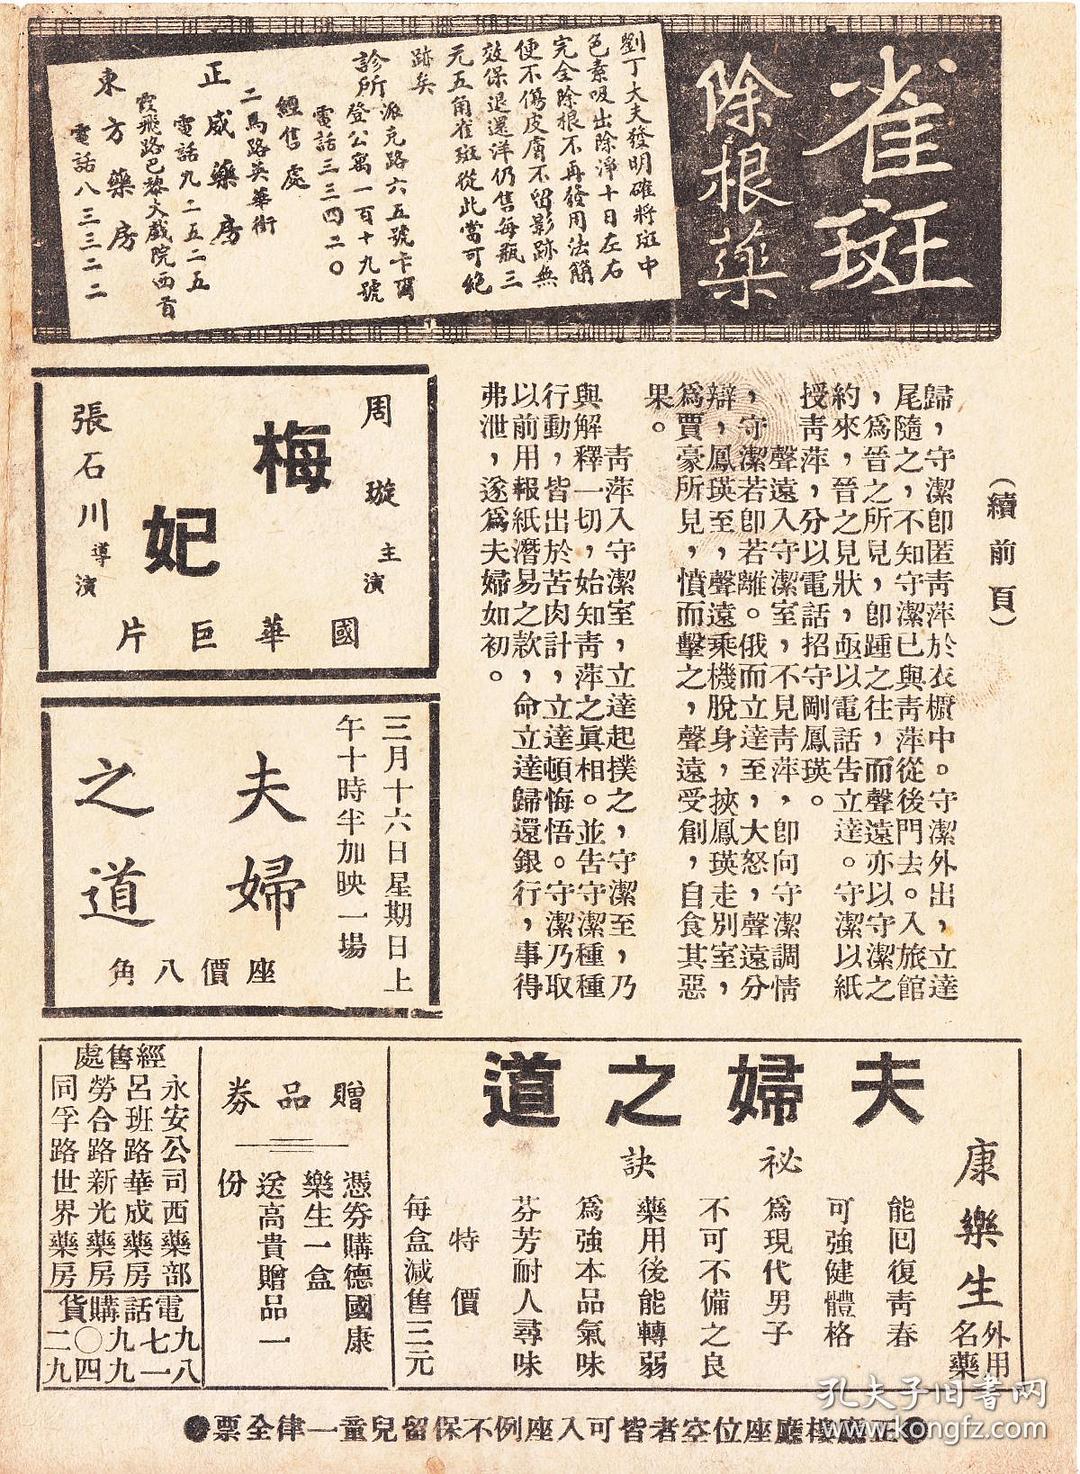 雀斑
除根藥
劉丁大夫發明確將斑中
色素吸出除淨十日左右
完全除根不再發用法簡
便不傷皮膚不留影跡無
效保退還洋仍售每瓶三
元五角雀斑從此當可絕
跡矣
診所派克路六五號卡爾
登公寓一百十九號
電話三三四二〇
經售處
二馬路英華街
正威藥房
電話九二五二五
霞飛路巴黎大戲院西首
東方藥房
電話八三三二二
(續前頁)
歸,守潔卽匿靑萍於衣櫥中。守潔外出,立達
尾隨之,不知守潔已與靑萍從後門去。入旅館
,爲晉之所見,卽踵之往,而聲遠亦以守潔之
約來,晉之見狀,亟以電話告立達。守潔以紙
授靑萍,分以電話招守剛鳳瑛。
聲遠入守潔室,不見靑萍,卽向守潔調情
,守潔若卽若離。俄而立達至,大怒,聲遠分
辯,鳳瑛至,聲遠乘機脫身,挾鳳瑛走別室,
爲賈豪所見,憤而擊之,聲遠受創,自食其惡
果。
靑萍入守潔室,立達起撲之,守潔至,乃
與解釋一切,始知靑萍之眞相。並告守潔種種
行動,皆出於苦肉計,立達頓悔悟。守潔乃取
以前用報紙潛易之款,命立達歸還銀行,事得
弗泄,遂爲夫婦如初。
周璇主演
梅妃
張石川導演
國華巨片
三月十六日星期日上
午十時半加映一場
夫婦
之道
座價八角
夫婦之道
祕訣
康樂生外用名藥
能回復靑春
可強健體格
爲現代男子
不可不備之良
藥用後能轉弱
爲強本品氣味
芬芳耐人尋味
特價
每盒減售三元
贈品券
憑券購德國康
樂生一盒
送高貴贈品一
份
經售處
永安公司西藥部
呂班路華成藥房
勞合路新光藥房
同孚路世界藥房
電話購貨
九七九〇二
八一九四九
●正廳樓廳座位空者皆可入座例不保留兒童一律全票●
孔夫子旧書网
www.kongfz.com